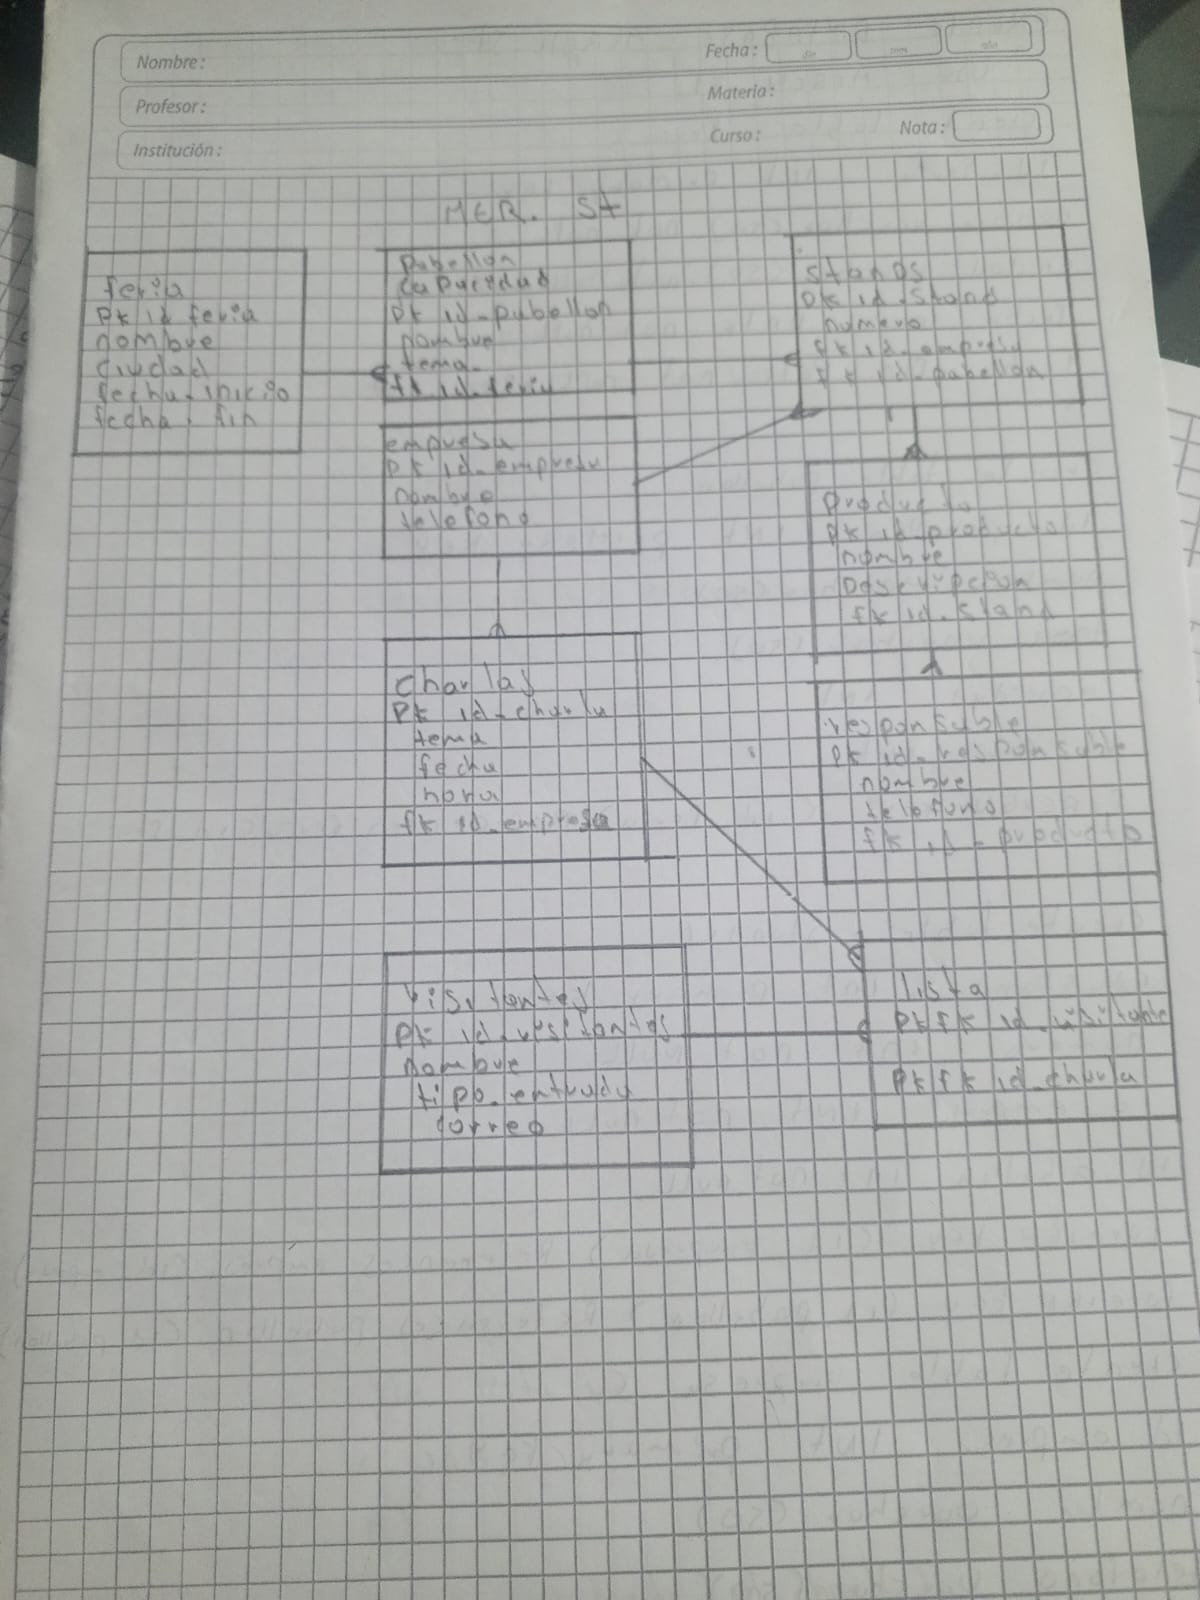 Nombre:
Fecha:
Profesor:
Materia:
Institución:
Curso:
Nota:
MER. St
feria
Pk id feria
nombre
ciudad
fecha. inicio
fecha. fin
Pabellon
capacidad
Pk id-pabellon
nombre
tema
fk id-feria
stands
Pk id.stand
numero
fk id-empresa
fk id-pabellon
empresa
Pk id-empresa
nombre
telefono
Producto
Pk id-producto
nombre
Descripcion
fk id.stand
charlas
Pk id-charla
tema
fecha
hora
fk id-empresa
responsable
Pk id-responsable
nombre
telefono
fk id-producto
visitantes
Pk id-visitantes
nombre
tipo-entrada
correo
lista
Pk fk id-visitante
Pk fk id-charla